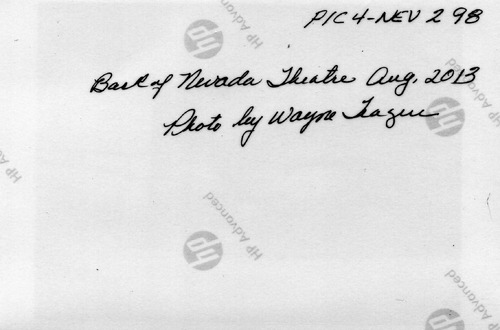 PIC 4-NEV 2 98
Back of Nevada Theatre Aug. 2013
Photo by Wayne
hp HP Advanced
hp HP Advanced
HP Advanced
hp HP Advanced
hp HP Advanced
hp HP Advanced